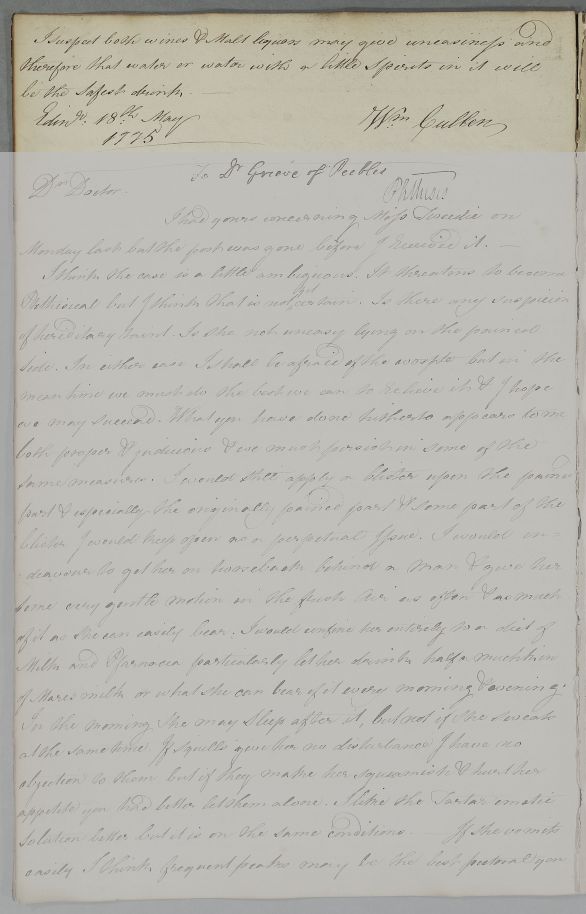 I suspect both wines & Malt liquors may give uneasiness and
therefore that water or water with a little Spirits in it will
be the safest drink. —
Edinr. 18th May Wm Cullen
1775
To Dr Grieve of Peebles
Dr Doctor. Phthisis
I had yours concerning Miss Tweedie on
Monday last but the post was gone before I received it. —
I think the case is a little ambiguous. It threatens to become
Phthisical but I think that is not yet certain. Is there any suspicion
of hereditary taint. Is she not uneasy lying on the pained
side. In either case I shall be afraid of the worst but in the
mean time we must do the best we can to relieve it & I hope
we may succeed. What you have done hitherto appears to me
both proper & judicious & we must persist in some of the
same measures. I would still apply a blister upon the pained
part & especially the originally pained part & some part of the
blister I would keep open as a perpetual Issue. I would en-
-deavour to get her on horseback behind a man & give her
some very gentle motion in the fresh air as often & as much
of it as she can easily bear. I would confine her entirely to a diet of
Milk and Farinacea particularly let her drink half a mutchkin
of Mares milk or what she can bear of it every morning & evening.
In the morning she may sleep after it, but not if she sweats
at the same time. If squills give her no disturbance I have no
objection to them but if they make her squeamish & hurt her
appetite you had better let them alone. I like the Tartar emetic
solution better but it is on the same conditions. — If she vomits
easily I think frequent pukes may be the best pectoral you